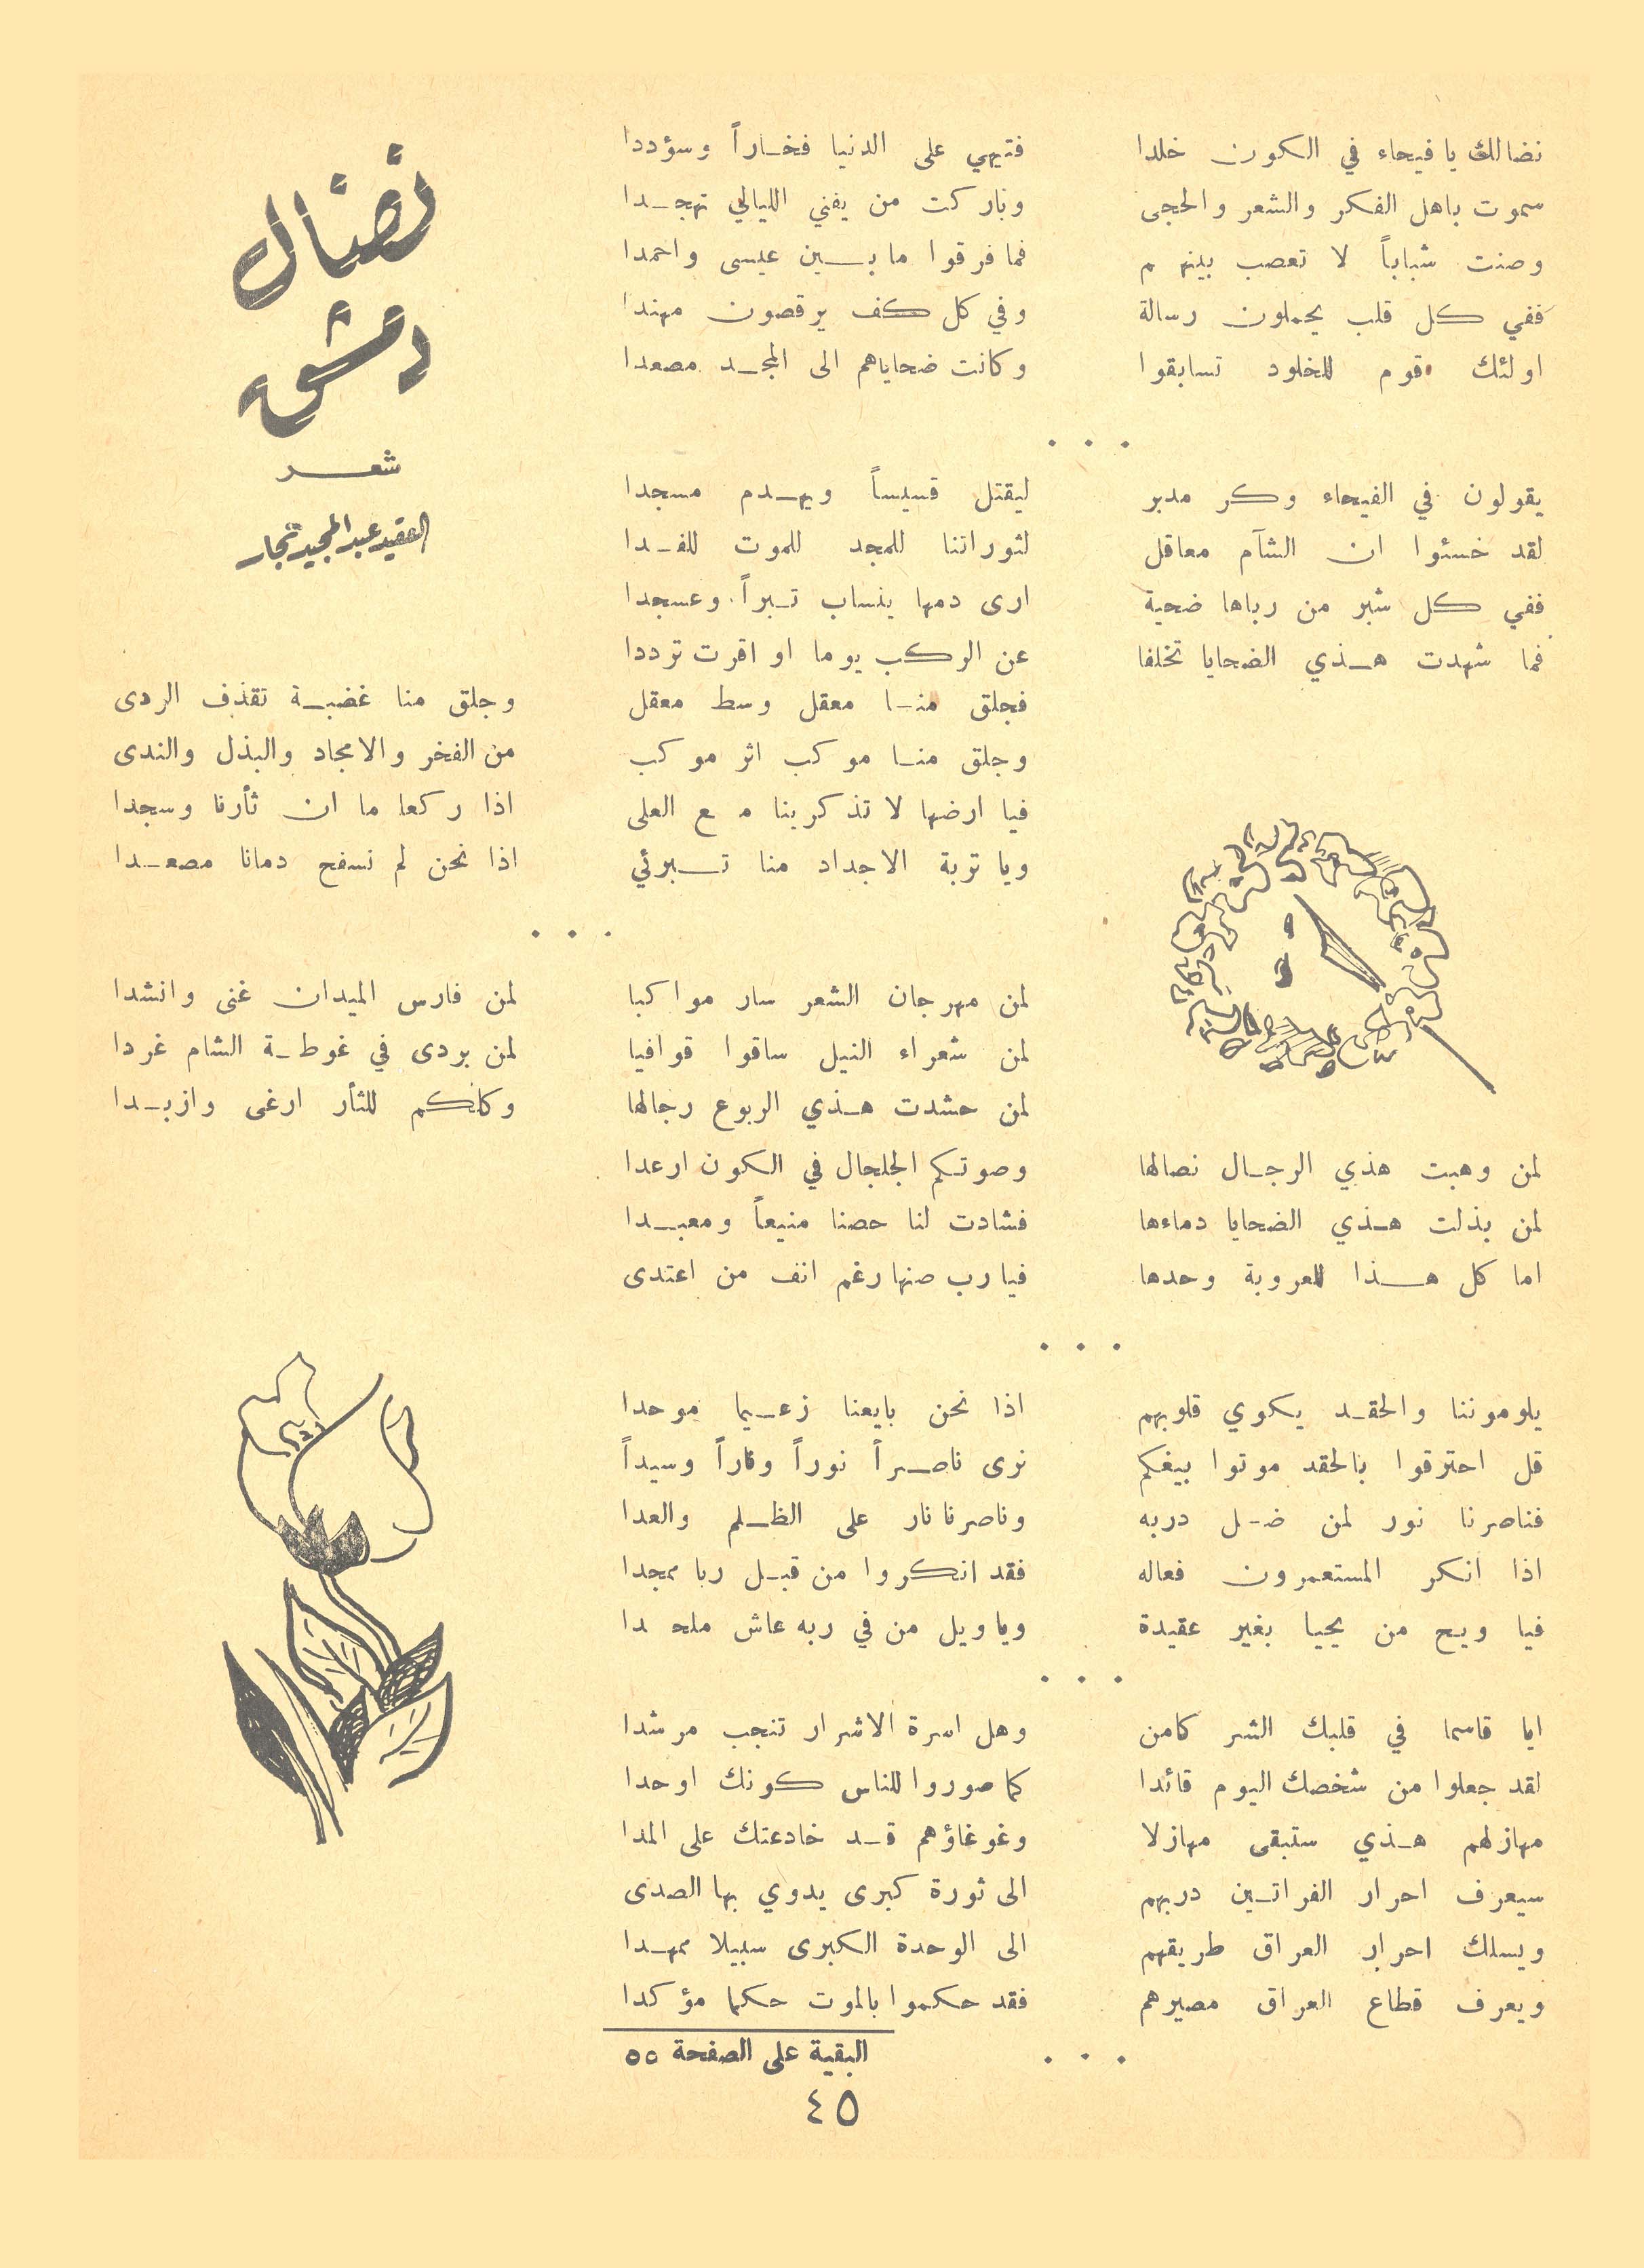 نضال
دمشق
شعر
العقيد عبد المجيد نجار
نضالك يا فيحاء في الكون خلدا
فتيهي على الدنيا فخاراً وسؤددا
سموت باهل الفكر والشعر والحجى
وباركت من يفني الليالي تهجدا
وصنت شباباً لا تعصب بينهم
فما فرقوا ما بين عيسى واحمدا
ففي كل قلب يحملون رسالة
وفي كل كف يرقصون مهندا
اولئك قوم للخلود تسابقوا
وكانت ضحاياهم الى المجد مصعدا
• • •
يقولون في الفيحاء وكر مدبر
ليقتل قسيساً ويهدم مسجدا
لقد خسئوا ان الشآم معاقل
لثوراتنا للمجد للموت للفدا
ففي كل شبر من رباها ضحية
ارى دمها ينساب تبراً وعسجدا
فما شهدت هذي الضحايا تخلفا
عن الركب يوما او اقرت ترددا
فجلق منا معقل وسط معقل
وجلق منا غضبة تقذف الردى
وجلق منا موكب اثر موكب
من الفخر والامجاد والبذل والندى
فيا ارضها لا تذكرينا مع العلى
اذا ركعا ما ان ثأرنا وسجدا
ويا تربة الاجداد منا تبرئي
اذا نحن لم نسفح دمانا مصعدا
• • •
لمن مهرجان الشعر سار مواكبا
لمن فارس الميدان غنى وانشدا
لمن شعراء النيل ساقوا قوافيا
لمن بردى في غوطة الشام غردا
لمن حشدت هذي الربوع رجالها
وكلكم للثأر ارغى وازبدا
لمن وهبت هذي الرجال نصالها
وصوتكم الجلجال في الكون ارعدا
لمن بذلت هذي الضحايا دماءها
فشادت لنا حصنا منيعاً ومعبدا
اما كل هذا للعروبة وحدها
فيا رب صنها رغم انف من اعتدى
• • •
يلوموننا والحقد يكوي قلوبهم
اذا نحن بايعنا زعيما موحدا
قل احترقوا بالحقد موتوا بيغكم
نرى ناصراً نوراً وناراً وسيداً
فناصرنا نور لمن ضل دربه
وناصرنا نار على الظلم والعدا
اذا انكر المستعمرون فعاله
فقد انكروا من قبل ربا ممجدا
فيا ويح من يحيا بغير عقيدة
ويا ويل من في ربه عاش ملحدا
• • •
ايا قاسما في قلبك الشر كامن
وهل اسرة الاشرار تنجب مرشدا
لقد جعلوا من شخصك اليوم قائدا
كما صوروا للناس كونك اوحدا
مهازلهم هذي ستبقى مهازلا
وغوغاؤهم قد خادعتك على المدا
سيعرف احرار الفراتين دربهم
الى ثورة كبرى يدوي بها الصدى
ويسلك احرار العراق طريقهم
الى الوحدة الكبرى سبيلا ممهدا
ويعرف قطاع العراق مصيرهم
فقد حكموا بالموت حكما مؤكدا
• • •
البقية على الصفحة ٥٥
٤٥